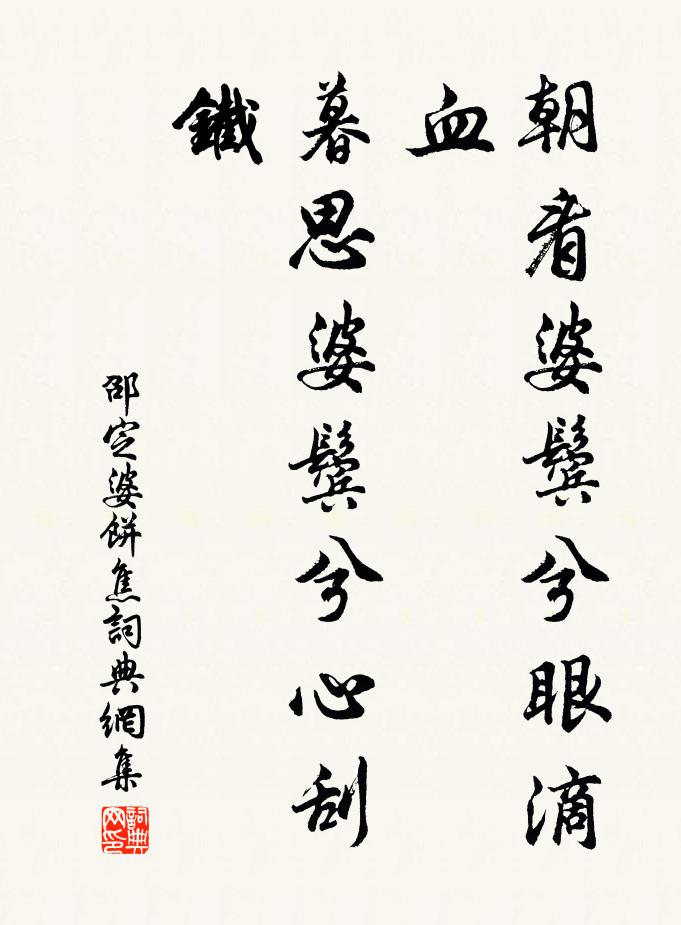 朝看婆鬢兮眼滴
血
暮思婆鬢兮心刮
鐵
邵定婆餅焦詞典網集
詞典
网印